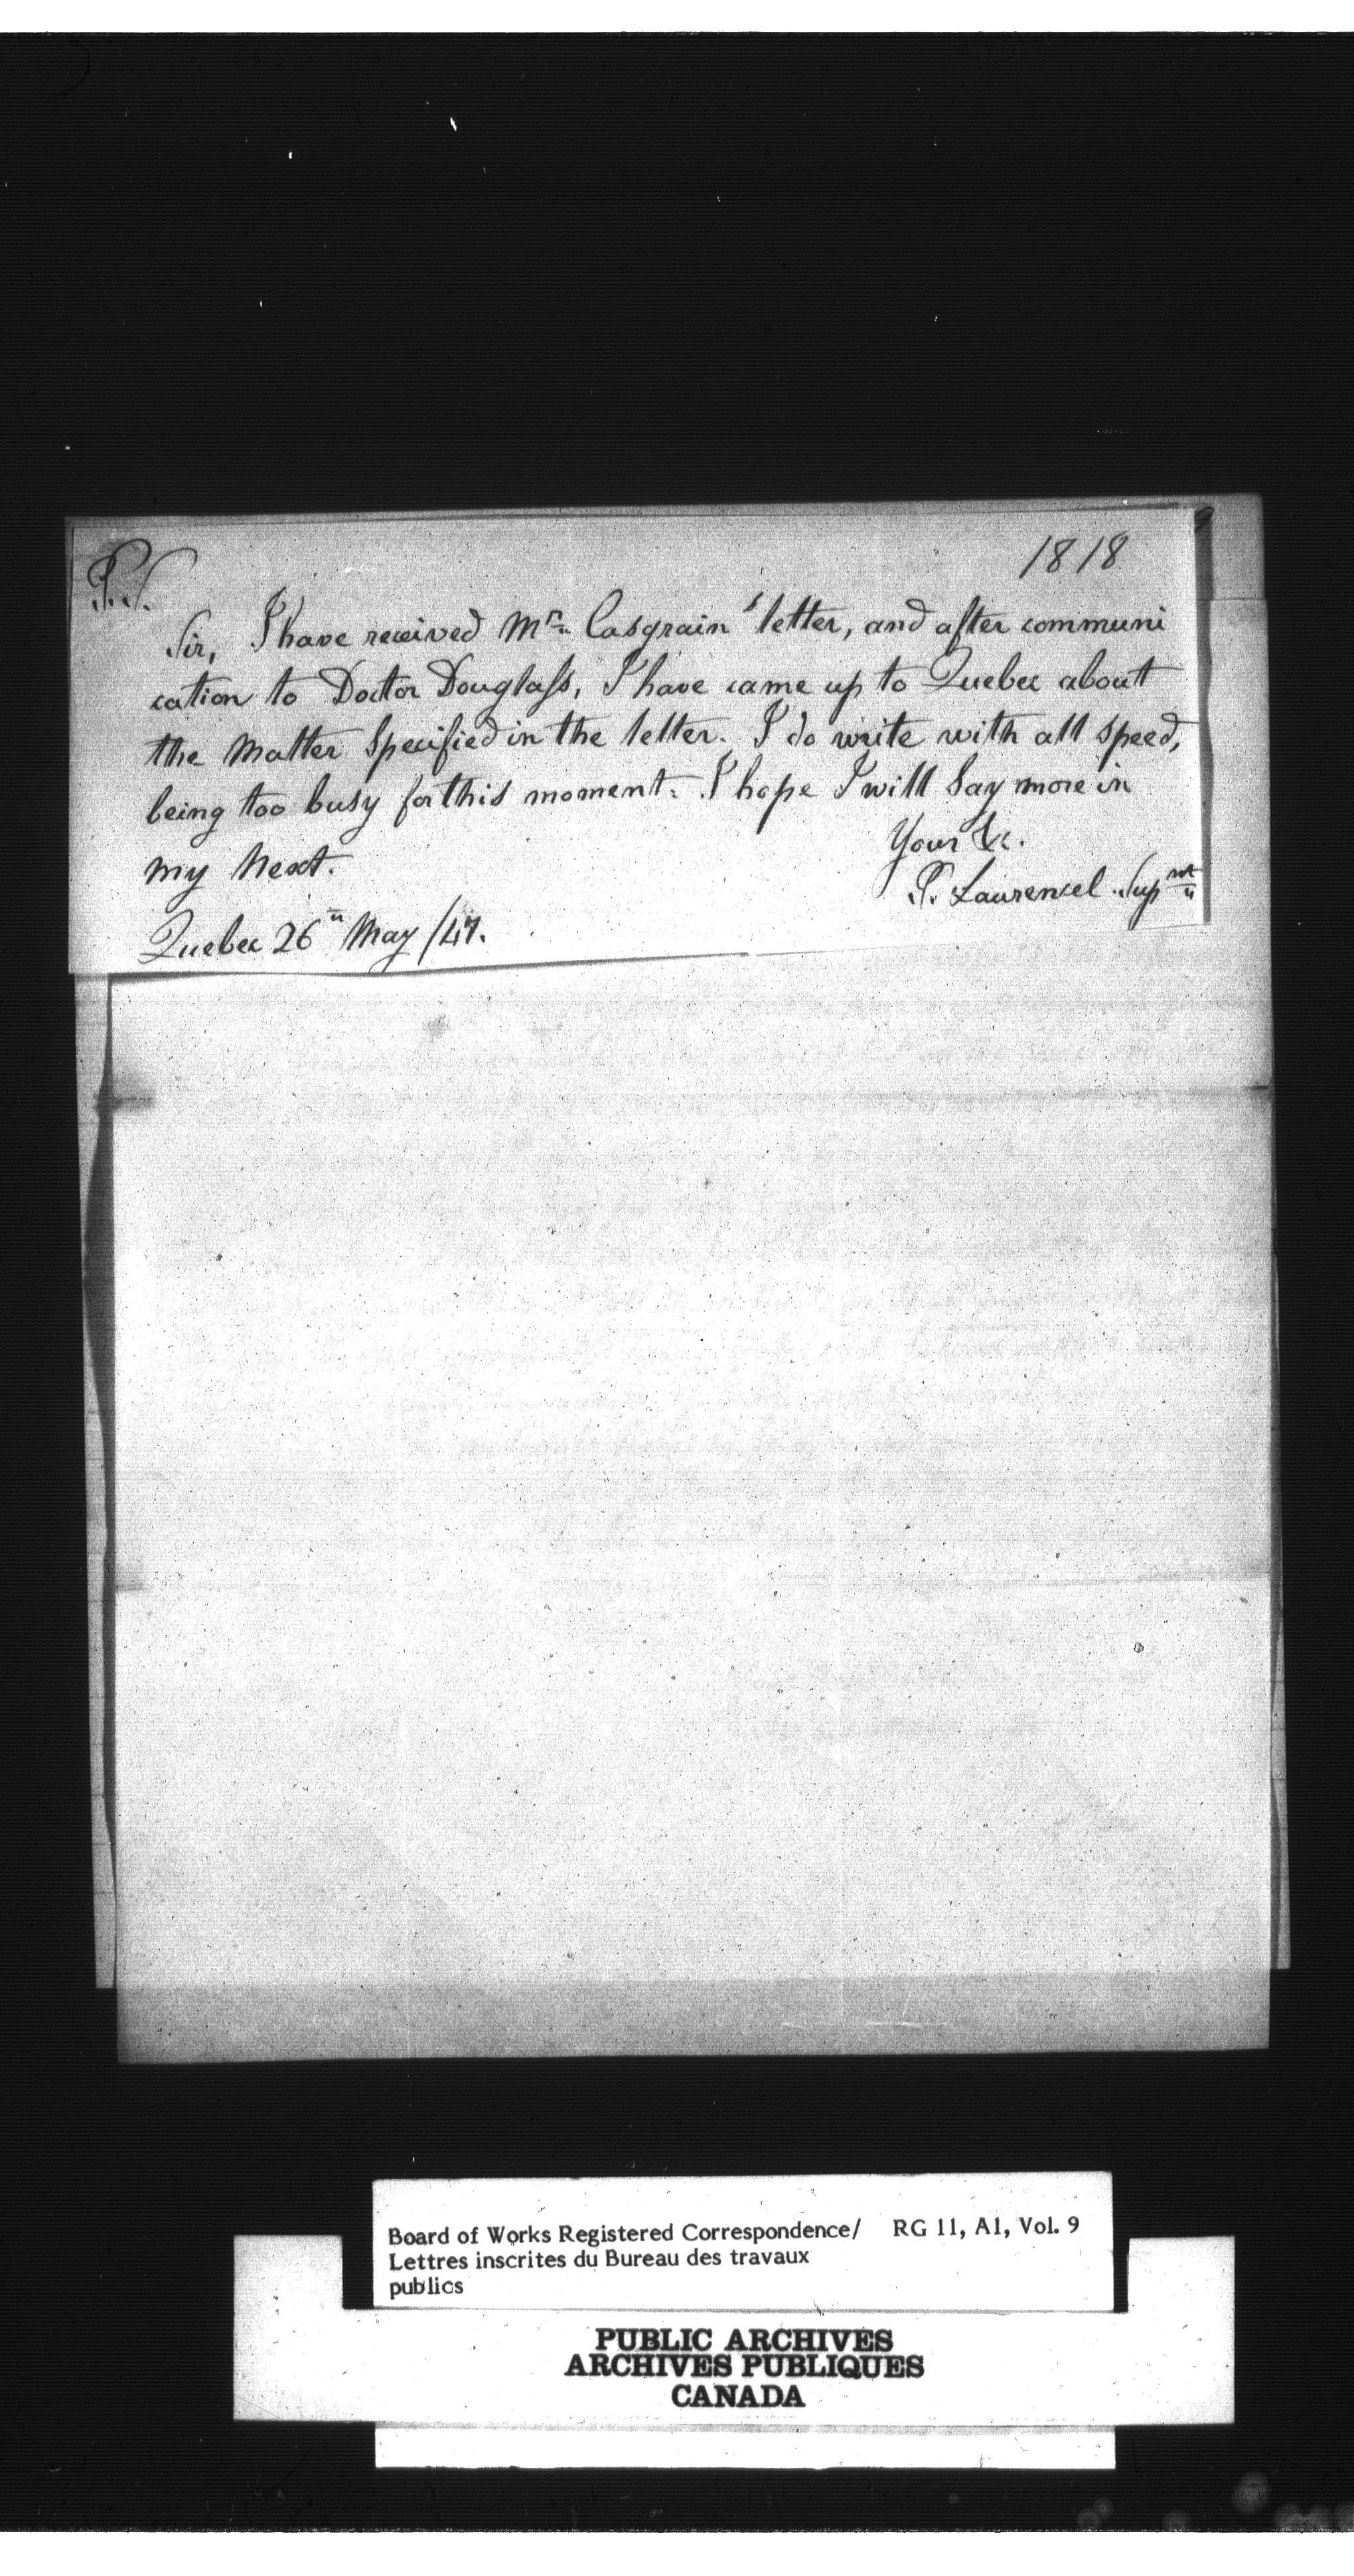 1818
P.S.
Sir, I have received Mr. Casgrain's letter, and after communi
cation to Doctor Douglass, I have came up to Quebec about
the Matter Specified in the letter. I do write with all speed,
being too busy for this moment. I hope I will Say more in
my Next.
Your &c.
P. Laurencel Supnt
Quebec 26" May /47.
Board of Works Registered Correspondence/ RG 11, A1, Vol. 9
Lettres inscrites du Bureau des travaux
publics
PUBLIC ARCHIVES
ARCHIVES PUBLIQUES
CANADA